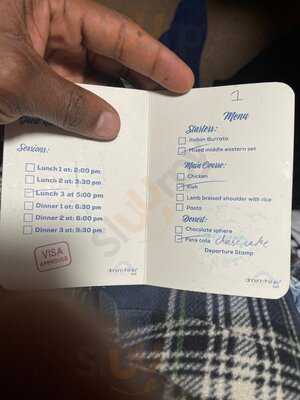 Sessions:
Lunch 1 at: 2:00 pm
Lunch 2 at: 3:30 pm
Lunch 3 at 5:00 pm
Dinner 1 at: 6:30 pm
Dinner 2 at: 8:00 pm
Dinner 3 at: 9:30 pm
VISA
APPROVED
1
Menu
Starters:
Italian Burrata
Mixed middle eastern set
Main Course:
Chicken
Fish
Lamb braised shoulder with rice
Pasta
Desert:
Chocolate sphere
Pana cota cheesecake
Departure Stamp